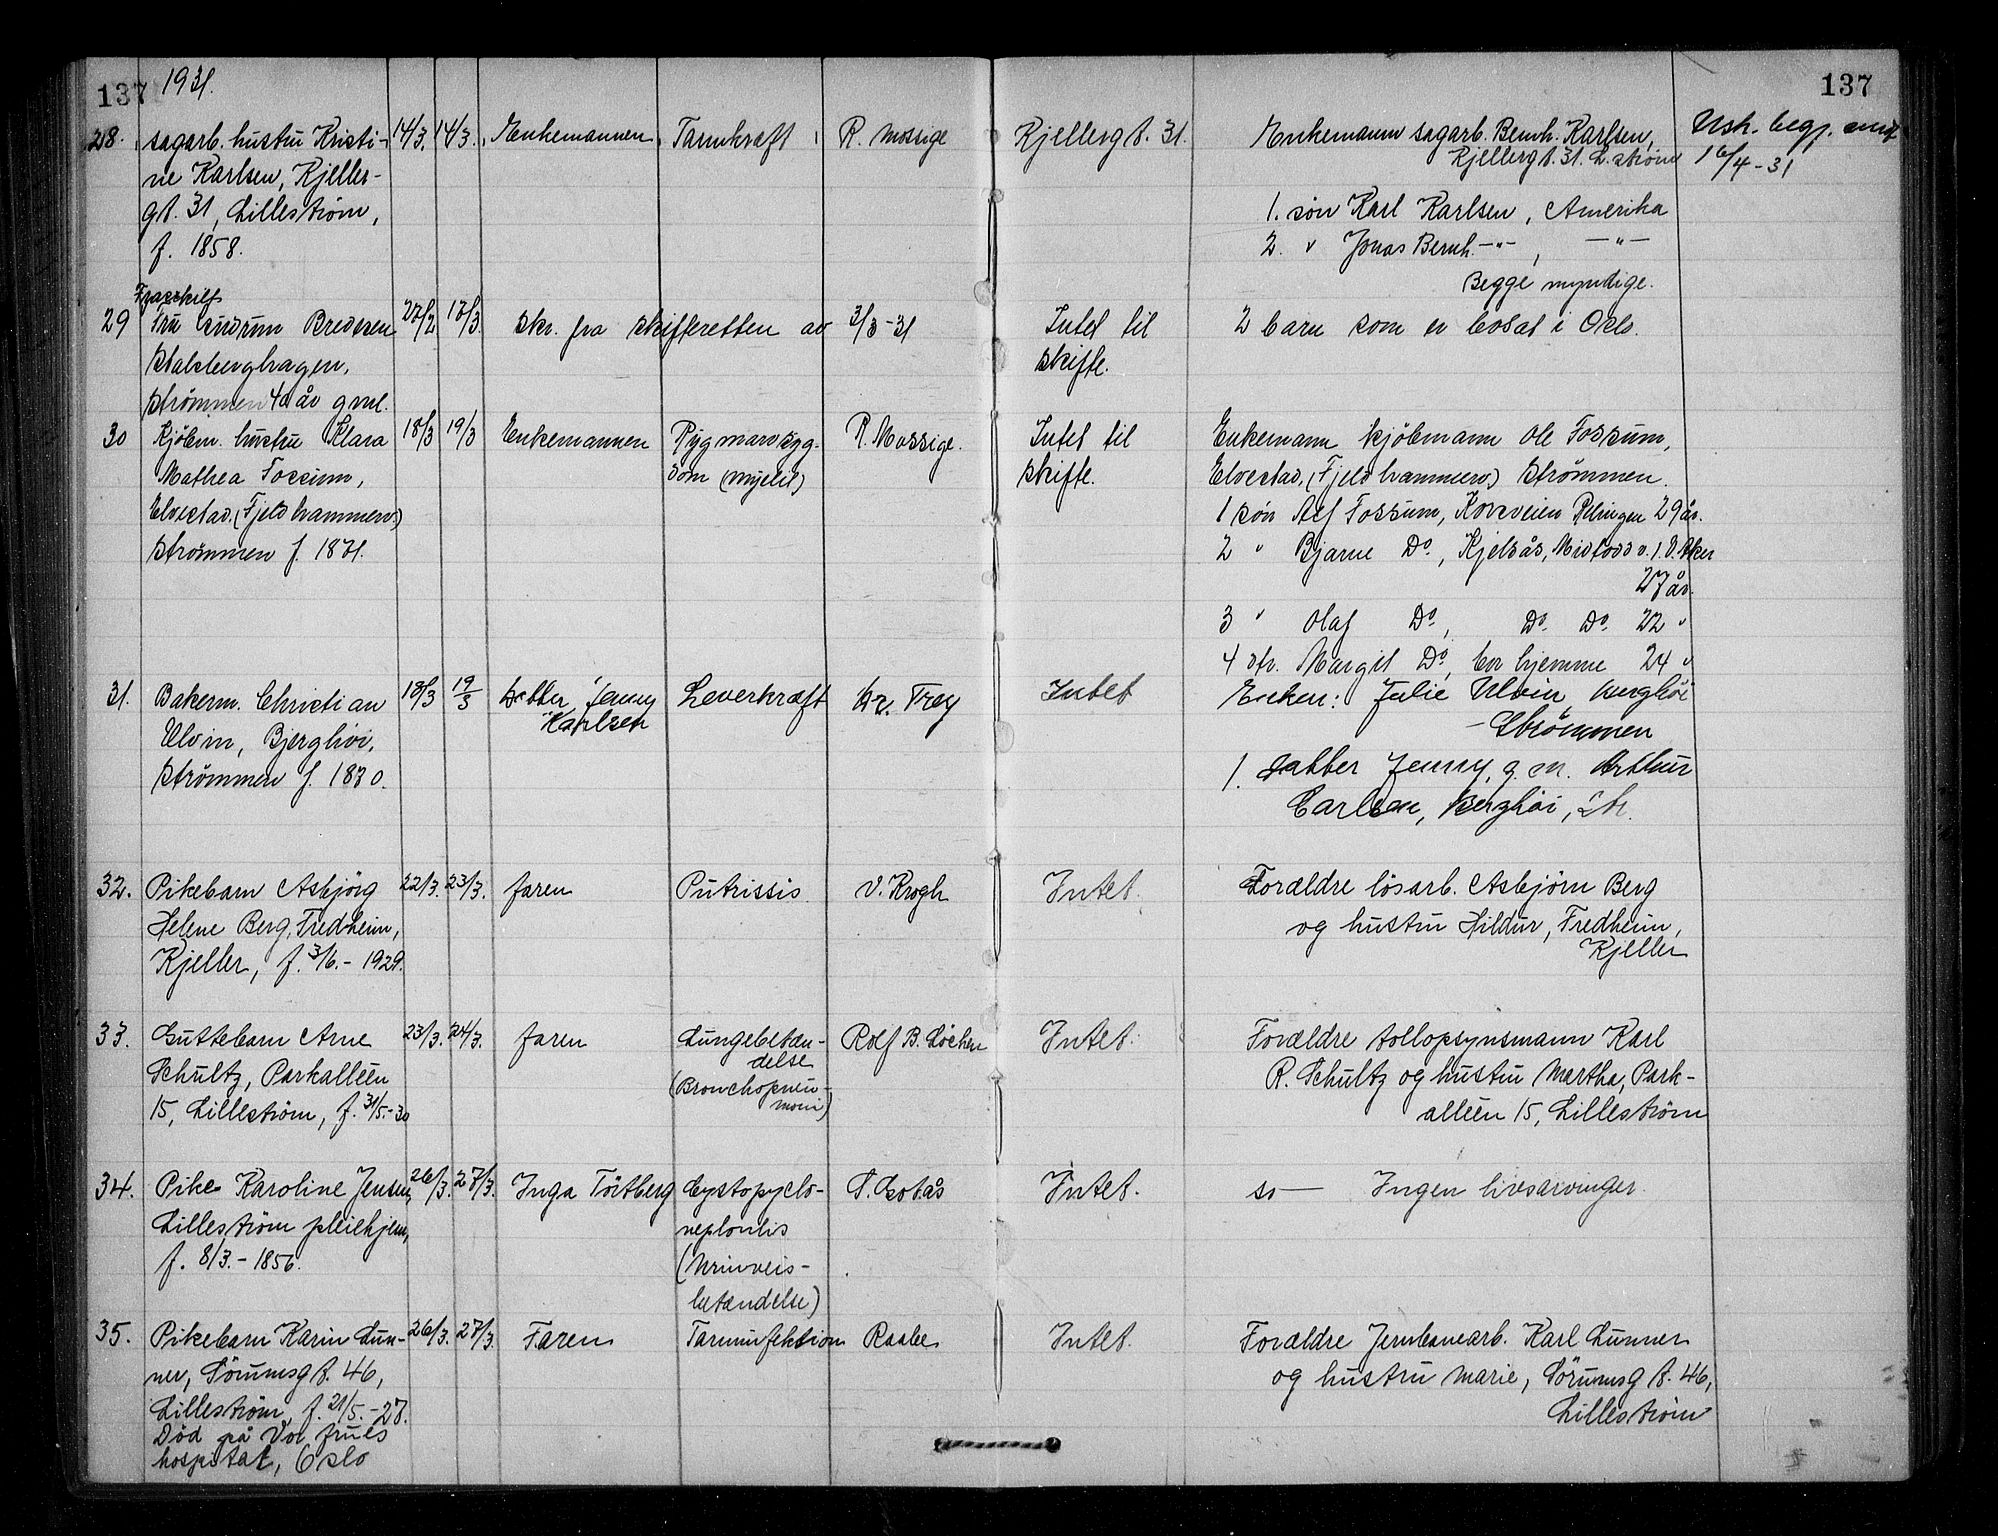 137 1931. 137
28. sagarb. hustru Kristi- 14/3. 14/3. Enkemannen Tarmkræft R. Mossige Kjellergt. 31. Enkemann sagarb. Bernh. Karlsen, Usk. begj. av
ne Karlsen, Kjeller- Kjellergt. 31. L.strøm 16/4-31
gt. 31, Lillestrøm, 1. søn Karl Karlsen, Amerika
f. 1858. 2. " Jonas Bernh. -"-, -"-
Begge myndige.
Fraskilt
29 Fru Gudrun Bredesen 27/2 17/3. Skr. fra skifteretten av 3/3-31 Intet til 2 barn som er bosat i Oslo.
Stalsberghagen, skifte.
Strømmen 40 år gml.
30 Kjøbm. hustru Klara 18/3 19/3 Enkemannen Rygmarvsyg- R. Mossige. Intet til Enkemann kjøbmann Ole Fossum,
Mathea Fossum, dom (myelit) skifte. Elvestad, (Fjeldhammerv.) Strømmen.
Elvestad, (Fjeldhammerv.) 1 søn Alf Fossum, Korsveien Rælingen 29 år.
Strømmen f. 1871. 2 " Bjarne Do, Kjelsås, V. Aker
27 år.
3 " Olaf Do, Do. Do. 22 "
4 dtr. Margit Do, bor hjemme 24 "
31. Bakerm. Christian 18/3 19/3 Datter Jenny Leverkræft Kr. Frey Intet Enken: Julie Ulvin, Berghøi
Ulvin, Bjerghøi, Karlsen Strømmen
Strømmen f. 1870. 1. Datter Jenny, g. m. Arthur
Carlsen, Berghøi, Str.
32. Pikebarn Asbjørg 22/3. 23/3. faren Putrissis V. Krogh Intet. Forældre løsarb. Asbjørn Berg
Helene Berg, Fredheim, og hustru Hildur, Fredheim,
Kjeller, f. 3/6.-1929. Kjeller
33. Guttebarn Arne 23/3. 24/3. faren Lungebetæn- Rolf B. Løchen Intet. Forældre tollopsynsmann Karl
Schultz, Parkalléen delse R. Schultz og hustru Martha, Park-
15, Lillestrøm, f. 31/5.-30 (Bronchopneu- alléen 15, Lillestrøm
moni)
34. Pike Karoline Jensen, 26/3. 27/3. Inga Törtberg Cystopyelo- Intet. so— Ingen livsarvinger.
Lillestrøm pleiehjem, neploritis
f. 8/3.-1856. (Urinveis-
betændelse)
35. Pikebarn Karin Lun- 26/3. 27/3. Faren Tarminfektion Raabe Intet. Forældre Jernbanearb. Karl Lunner
ner, Sörumsgt. 46, og hustru Marie, Sörumsgt. 46,
Lillestrøm, f. 21/5.-27. Lillestrøm
Død på Vor frues
hospital, Oslo